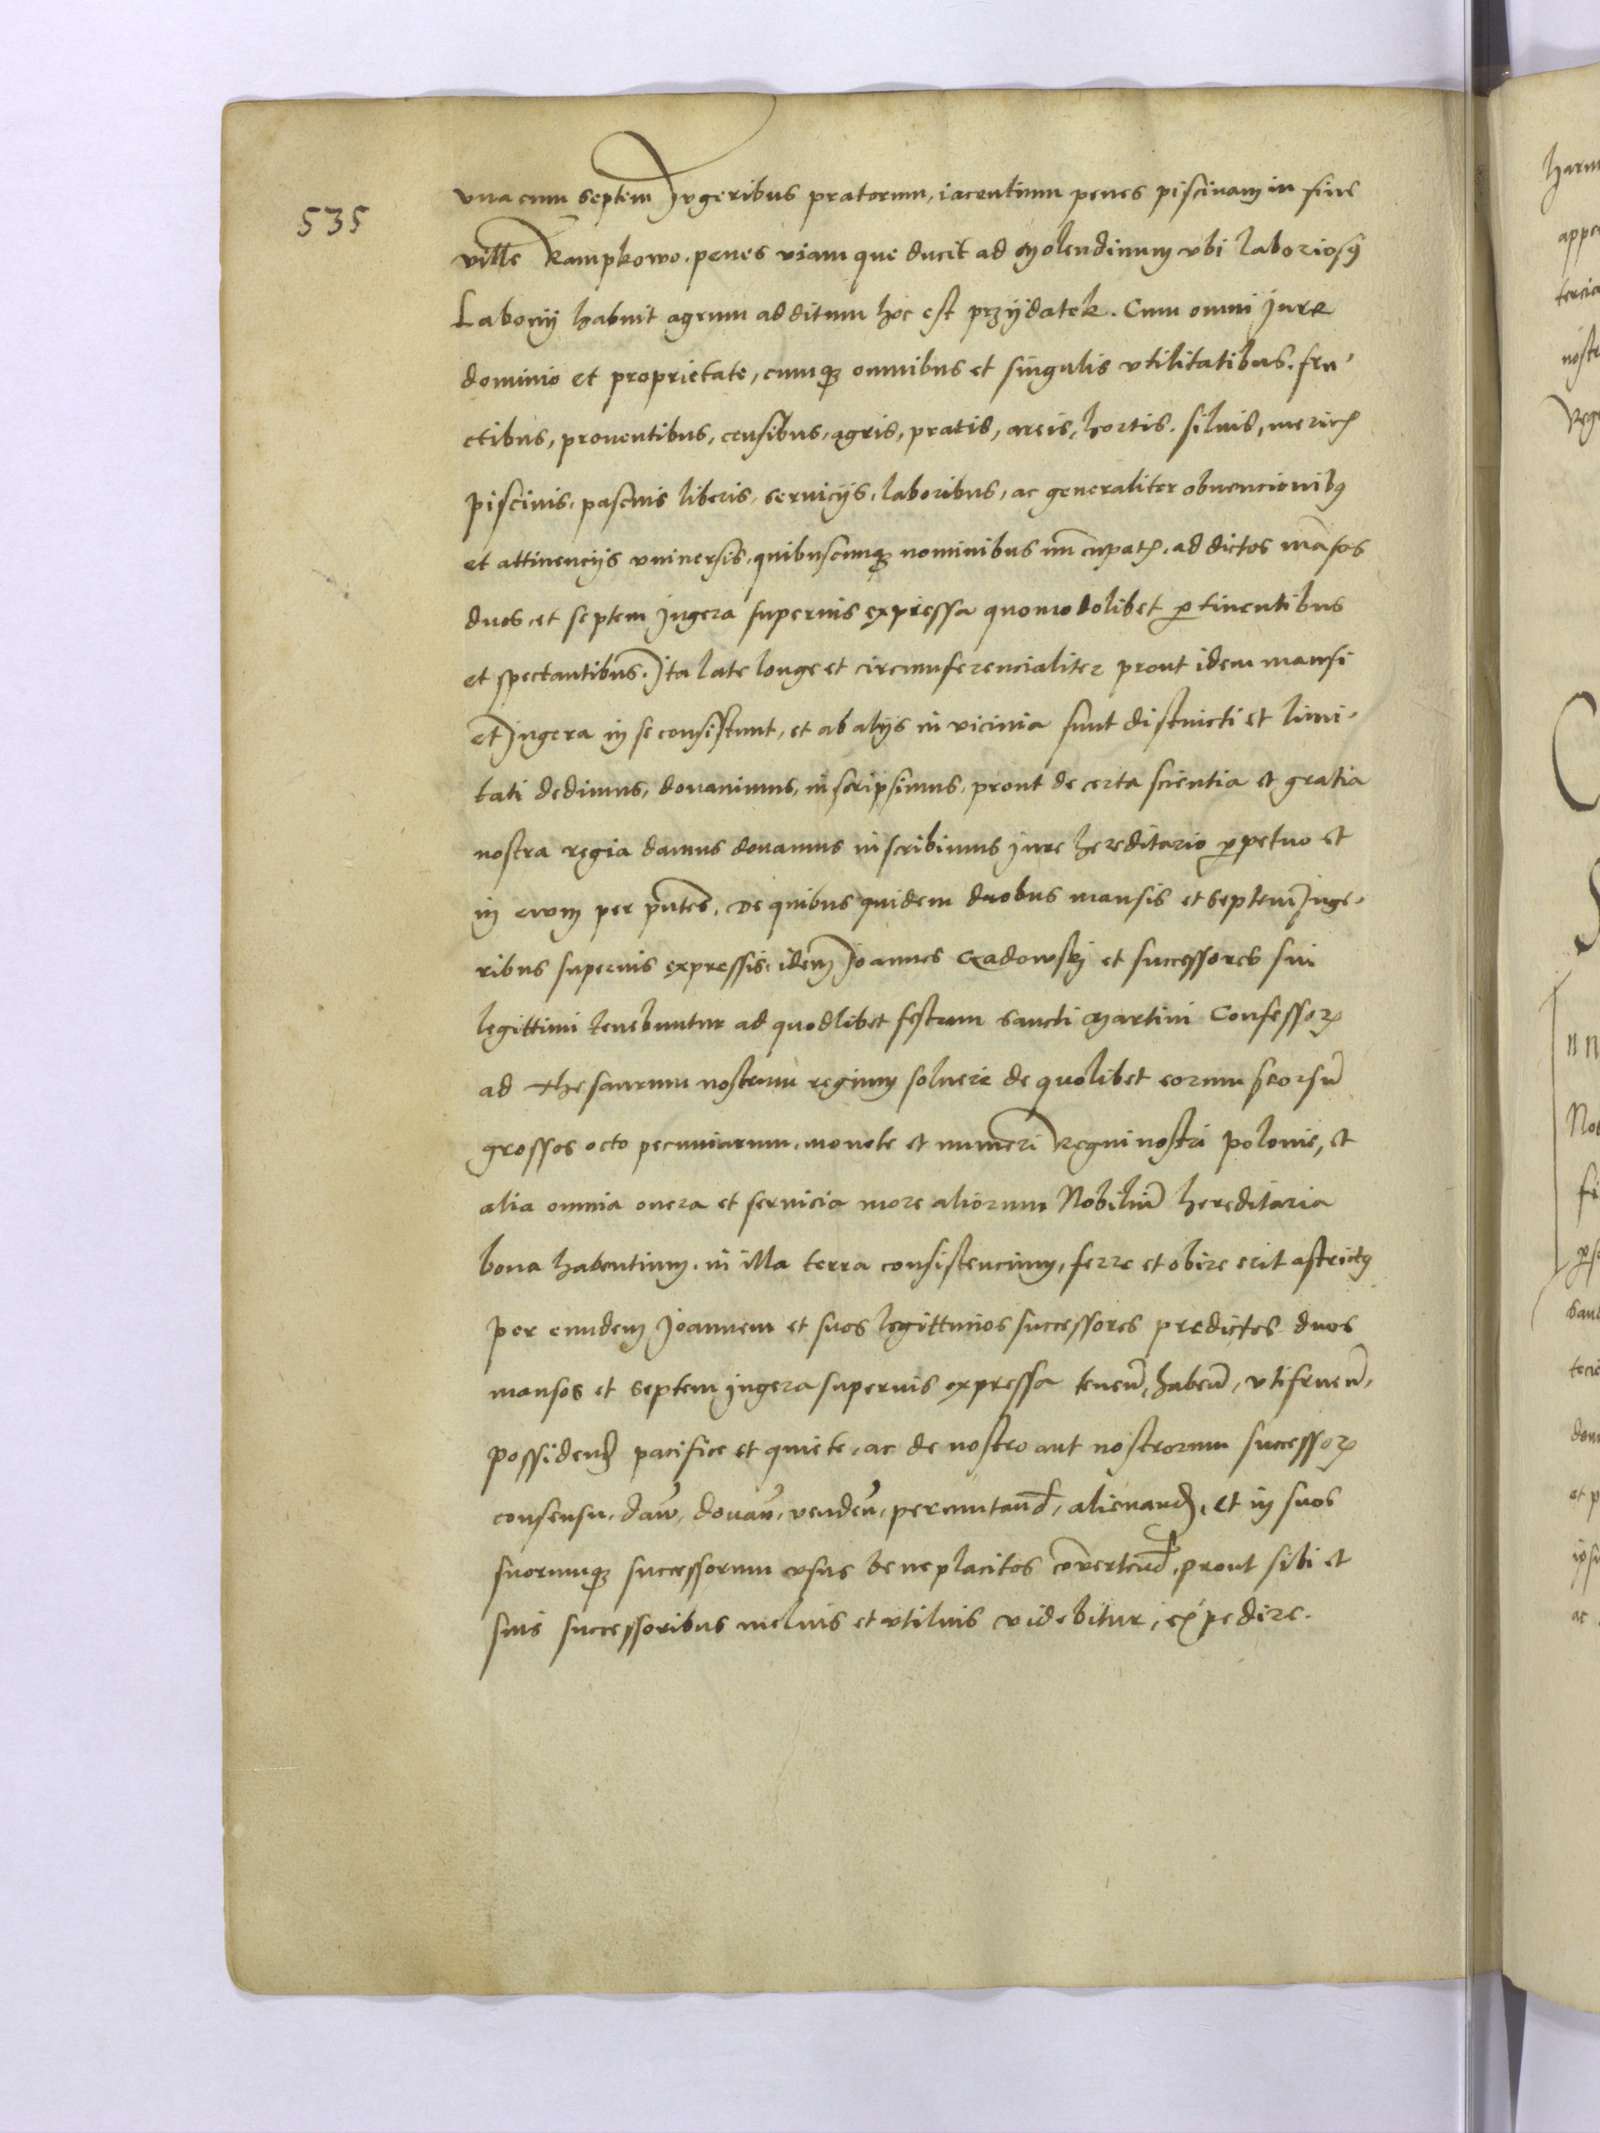 535
vna cum septem Jvgeribus pratorum, iacentium penes piscinam in fine
ville Kampkowo, penes viam que ducit ad Molendinum vbi laboriosꝰ
Labony habuit agrum additum hoc est przydatek. Cum omni Jure
dominio et proprietate, cumqꝫ omnibus et singulis vtilitatibus, fru-
ctibus, prouentibus, censibus, agris, pratis, areis, hortis, siluis, mericꝭ
piscinis, pascuis liberis, seruicijs, laboribus, ac generaliter obuencionibꝰ
et attinencijs vniuersis, quibuscunqꝫ nominibus nūcupatꝭ, ad dictos māsos
duos, et septem Jugera superius expressa quomodolibet ꝑtinentibus
et spectantibus. Jta late longe et circumferencialiter prout idem mansi
et Jugera in se consistunt, et ab alijs in vicinia sunt distincti et limi-
tati dedimus, donauimus, inscripsimus, prout de certa scientia et gratia
nostra regia damus donamus inscribimus Jure hereditario ꝑpetuo et
in ewm per pn̄tes. De quibus quidem duobus mansis et septem Juge-
ribus superius expressis, idem Joannes Gadowskj et successores sui
legittimi tenebuntur ad quodlibet festum sancti Martini Confessorꝭ
ad thesaurum nostrum regium soluere de quolibet eorum seorsū
grossos octo pecuniarum, monete et numeri Regni nostri Polonie, et
alia omnia onera et seruicia more aliorum Nobiliū hereditaria
bona habentium, in illa terra consistencium, ferre et obire erit astrictꝰ
per eundem Joannem et suos legittimos successores predictos duos
mansos et septem Jugera superius expressa tenen̄, haben̄, vtifruen̄,
possidend̄ pacifice et quiete, ac de nostro aut nostrorum successorꝝ
consensu, dan̄, donan̄, venden̄, permutand̄, alienand̄, et in suos
suorumqꝫ successorum vsus beneplacitos cōuertend̄, prout sibi et
suis successoribus melius et vtilius videbitur, expedire.